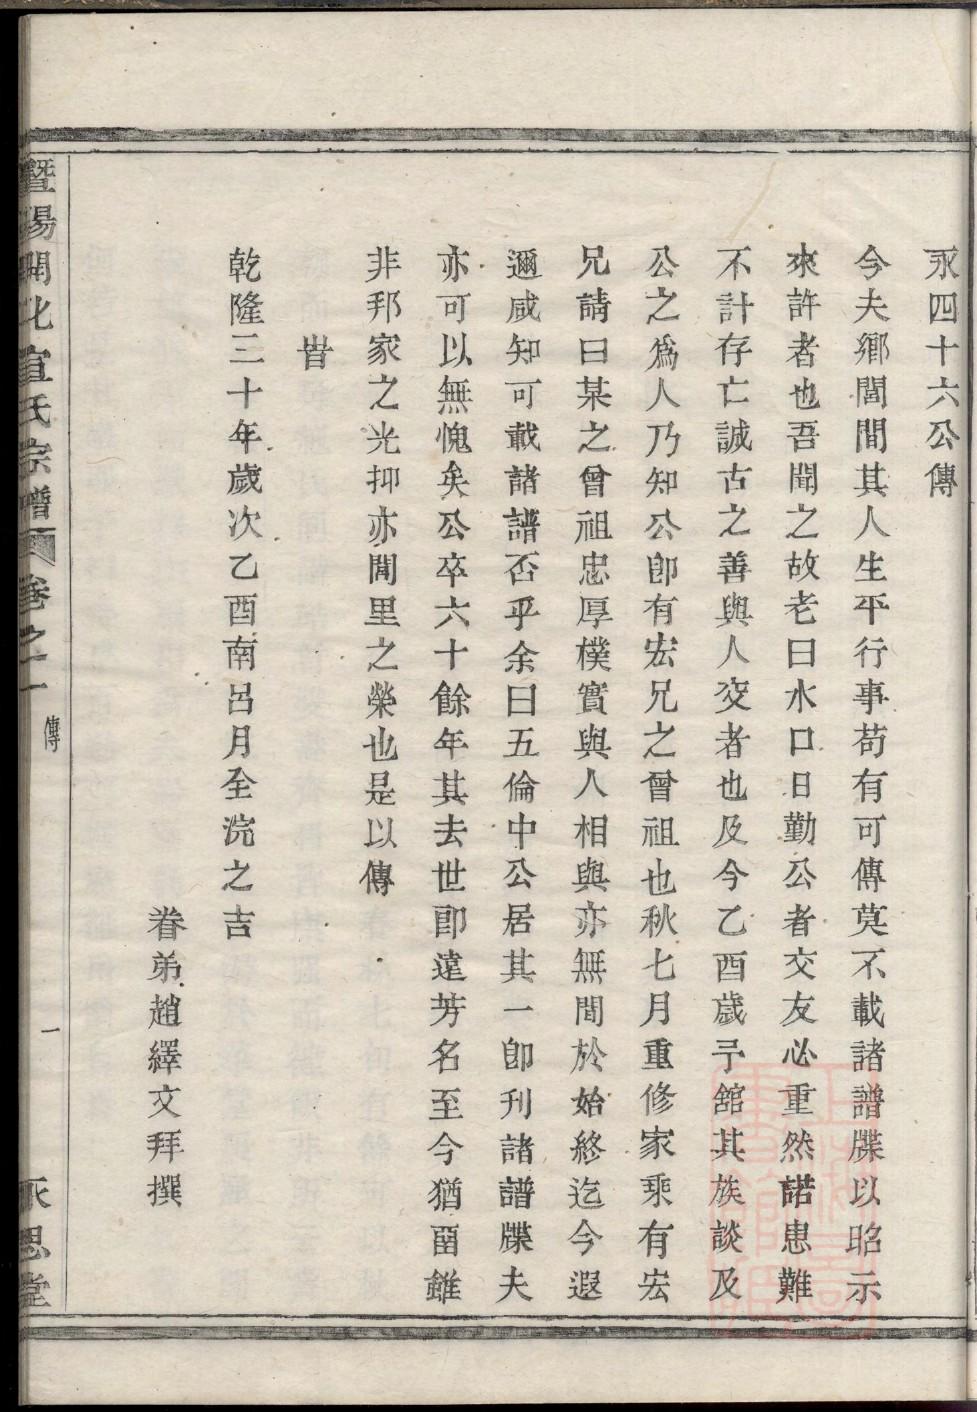 永四十六公傳
今夫鄉閭間其人生平行事苟有可傳莫不載諸譜牒以昭示
來許者也吾聞之故老曰水口日勤公者交友必重然諾患難
不計存亡誠古之善與人交者也及今乙酉歲予館其族談及
公之為人乃知公卽有宏兄之曾祖也秋七月重修家乘有宏
兄請曰某之曾祖忠厚樸實與人相與亦無間於始終迄今遐
邇咸知可載諸譜否乎余曰五倫中公居其一卽刊諸譜牒夫
亦可以無愧矣公卒六十餘年其去世卽遠芳名至今猶畱雖
非邦家之光抑亦閭里之榮也是以傳
旹
乾隆三十年歲次乙酉南呂月全浣之吉
眷弟趙繹文拜撰
暨陽開化宣氏宗譜 卷之一 傳 一 永思堂